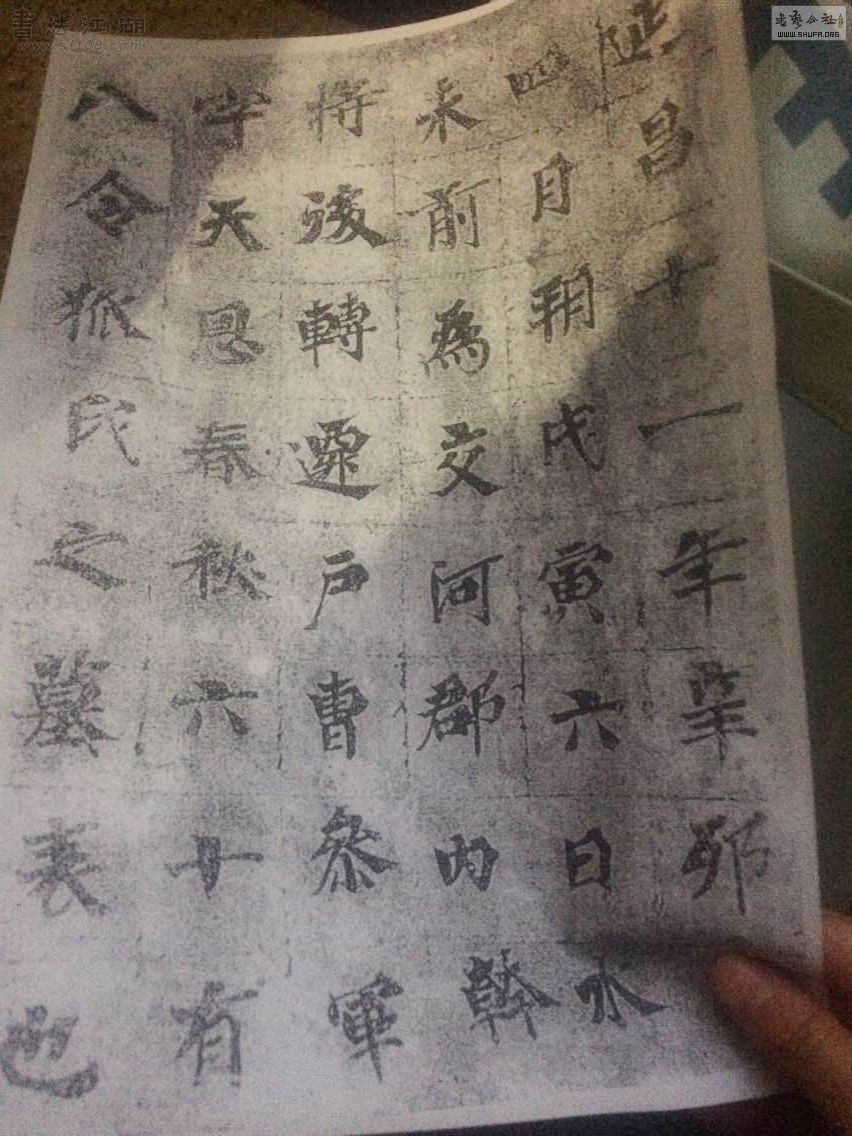 書法江湖
www.sf108.com
书艺公社
WWW.SHUFA.ORG
延昌十一年辛卯
四月朔戊寅六日水
未前為交河郡内幹
將後轉遷户曹參軍
字天恩春秋六十有
八令狐氏之墓表也